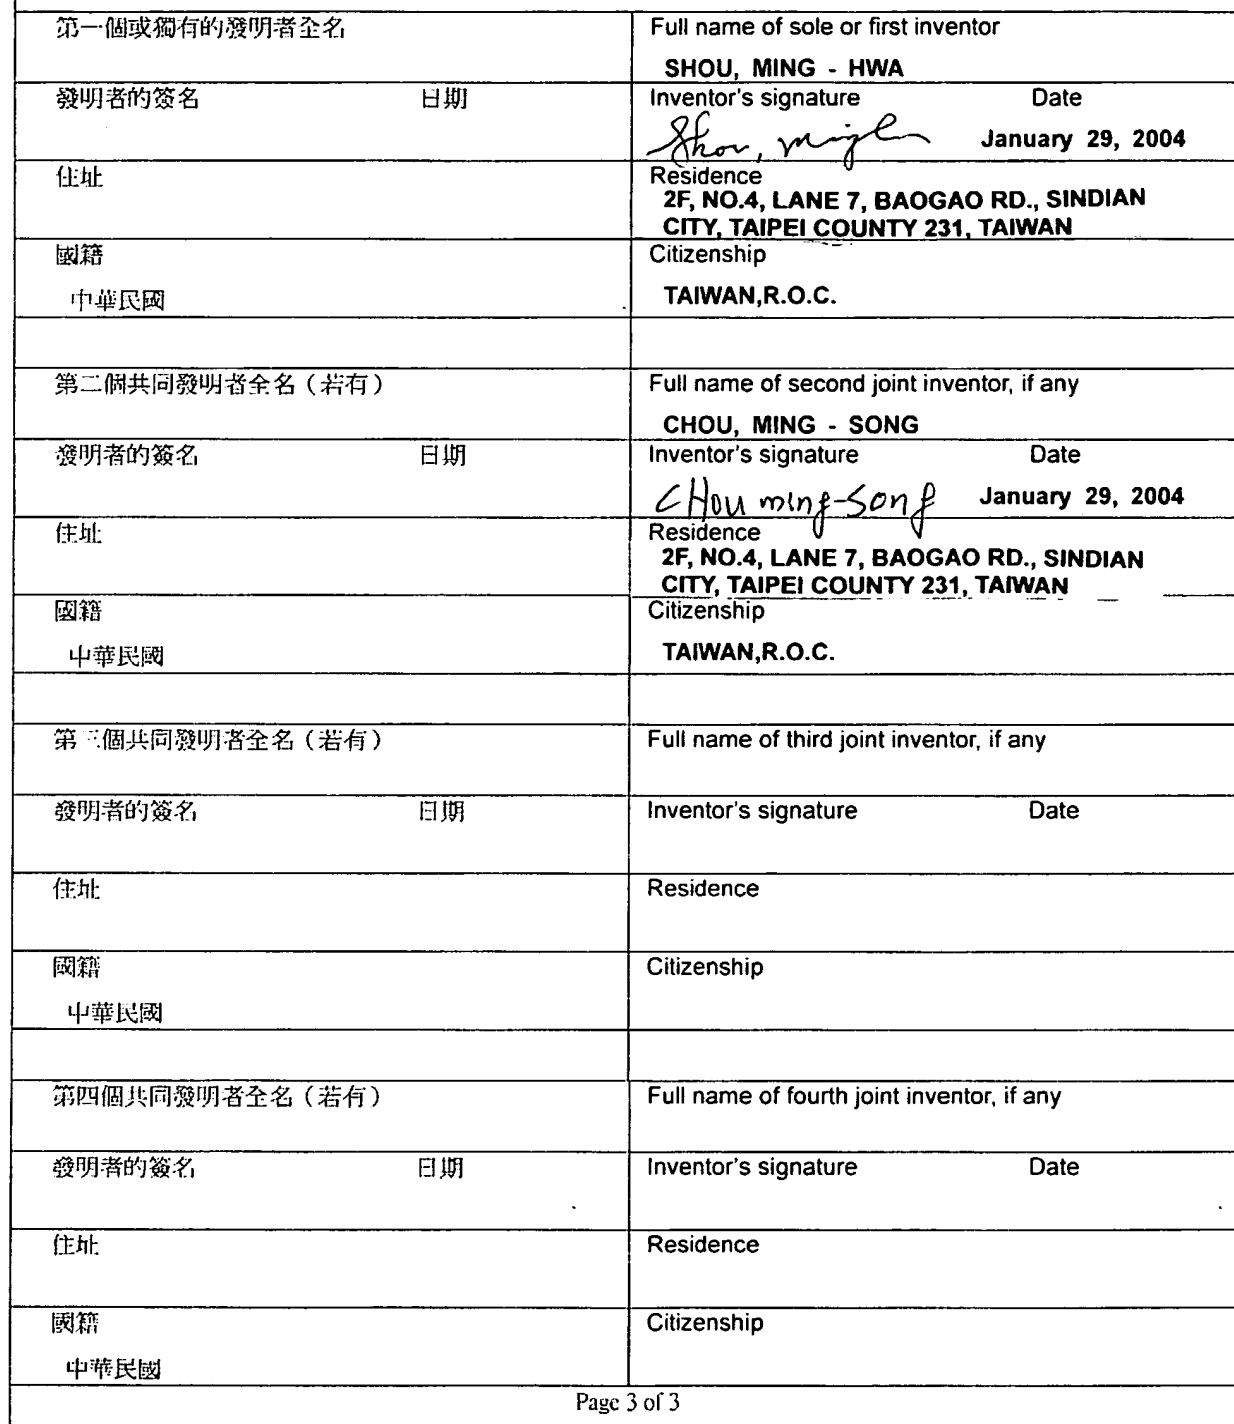 第一個或獨有的發明者全名
Full name of sole or first inventor
SHOU, MING - HWA
發明者的簽名 日期
Inventor's signature Date
Shou, January 29, 2004
住址
Residence
2F, NO.4, LANE 7, BAOGAO RD., SINDIAN
CITY, TAIPEI COUNTY 231, TAIWAN
國籍
Citizenship
中華民國
TAIWAN,R.O.C.
第二個共同發明者全名（若有）
Full name of second joint inventor, if any
CHOU, MING - SONG
發明者的簽名 日期
Inventor's signature Date
CHOU ming-Song January 29, 2004
住址
Residence
2F, NO.4, LANE 7, BAOGAO RD., SINDIAN
CITY, TAIPEI COUNTY 231, TAIWAN
國籍
Citizenship
中華民國
TAIWAN,R.O.C.
第三個共同發明者全名（若有）
Full name of third joint inventor, if any
發明者的簽名 日期
Inventor's signature Date
住址
Residence
國籍
Citizenship
中華民國
第四個共同發明者全名（若有）
Full name of fourth joint inventor, if any
發明者的簽名 日期
Inventor's signature Date
住址
Residence
國籍
Citizenship
中華民國
Page 3 of 3